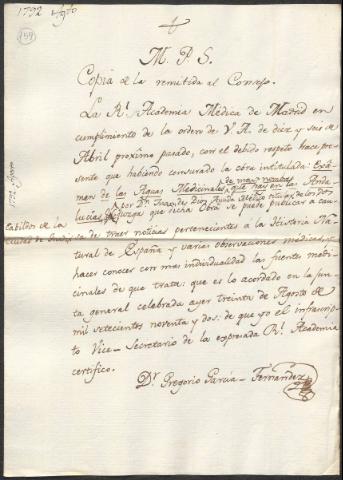 1792 Agto
159
M. P. S.
Copia de la remitida al Consejo.
La Rl. Academia Médica de Madrid en
cumplimiento de la orden de V. A. de diez y seis de
Abril proximo pasado, con el debido respeto hace pre-
sente que habiendo censurado la obra intitulada: Exâ-
men de las Aguas Medicinales de mas nombre
que hay en las Anda-
lucias, por Dn. Juan de Dios Ayuda Médico titular de
Juzga que dicha Obra se puede publicar a cau-
sa de traer noticias pertenecientes a la Historia Na-
tural de España y varias observaciones medicas, y
hacer conocer con mas individualidad las fuentes medi-
cinales de que trata: que es lo acordado en la jun-
ta general celebrada ayer treinta de Agosto de
mil setecientos noventa y dos: de que yo el infrascrip-
to Vice-Secretario de la expresada Rl. Academia
certifico.
Dr. Gregorio Garcia-Fernandez
1792 Agosto
Cabildos de la
ciudad de